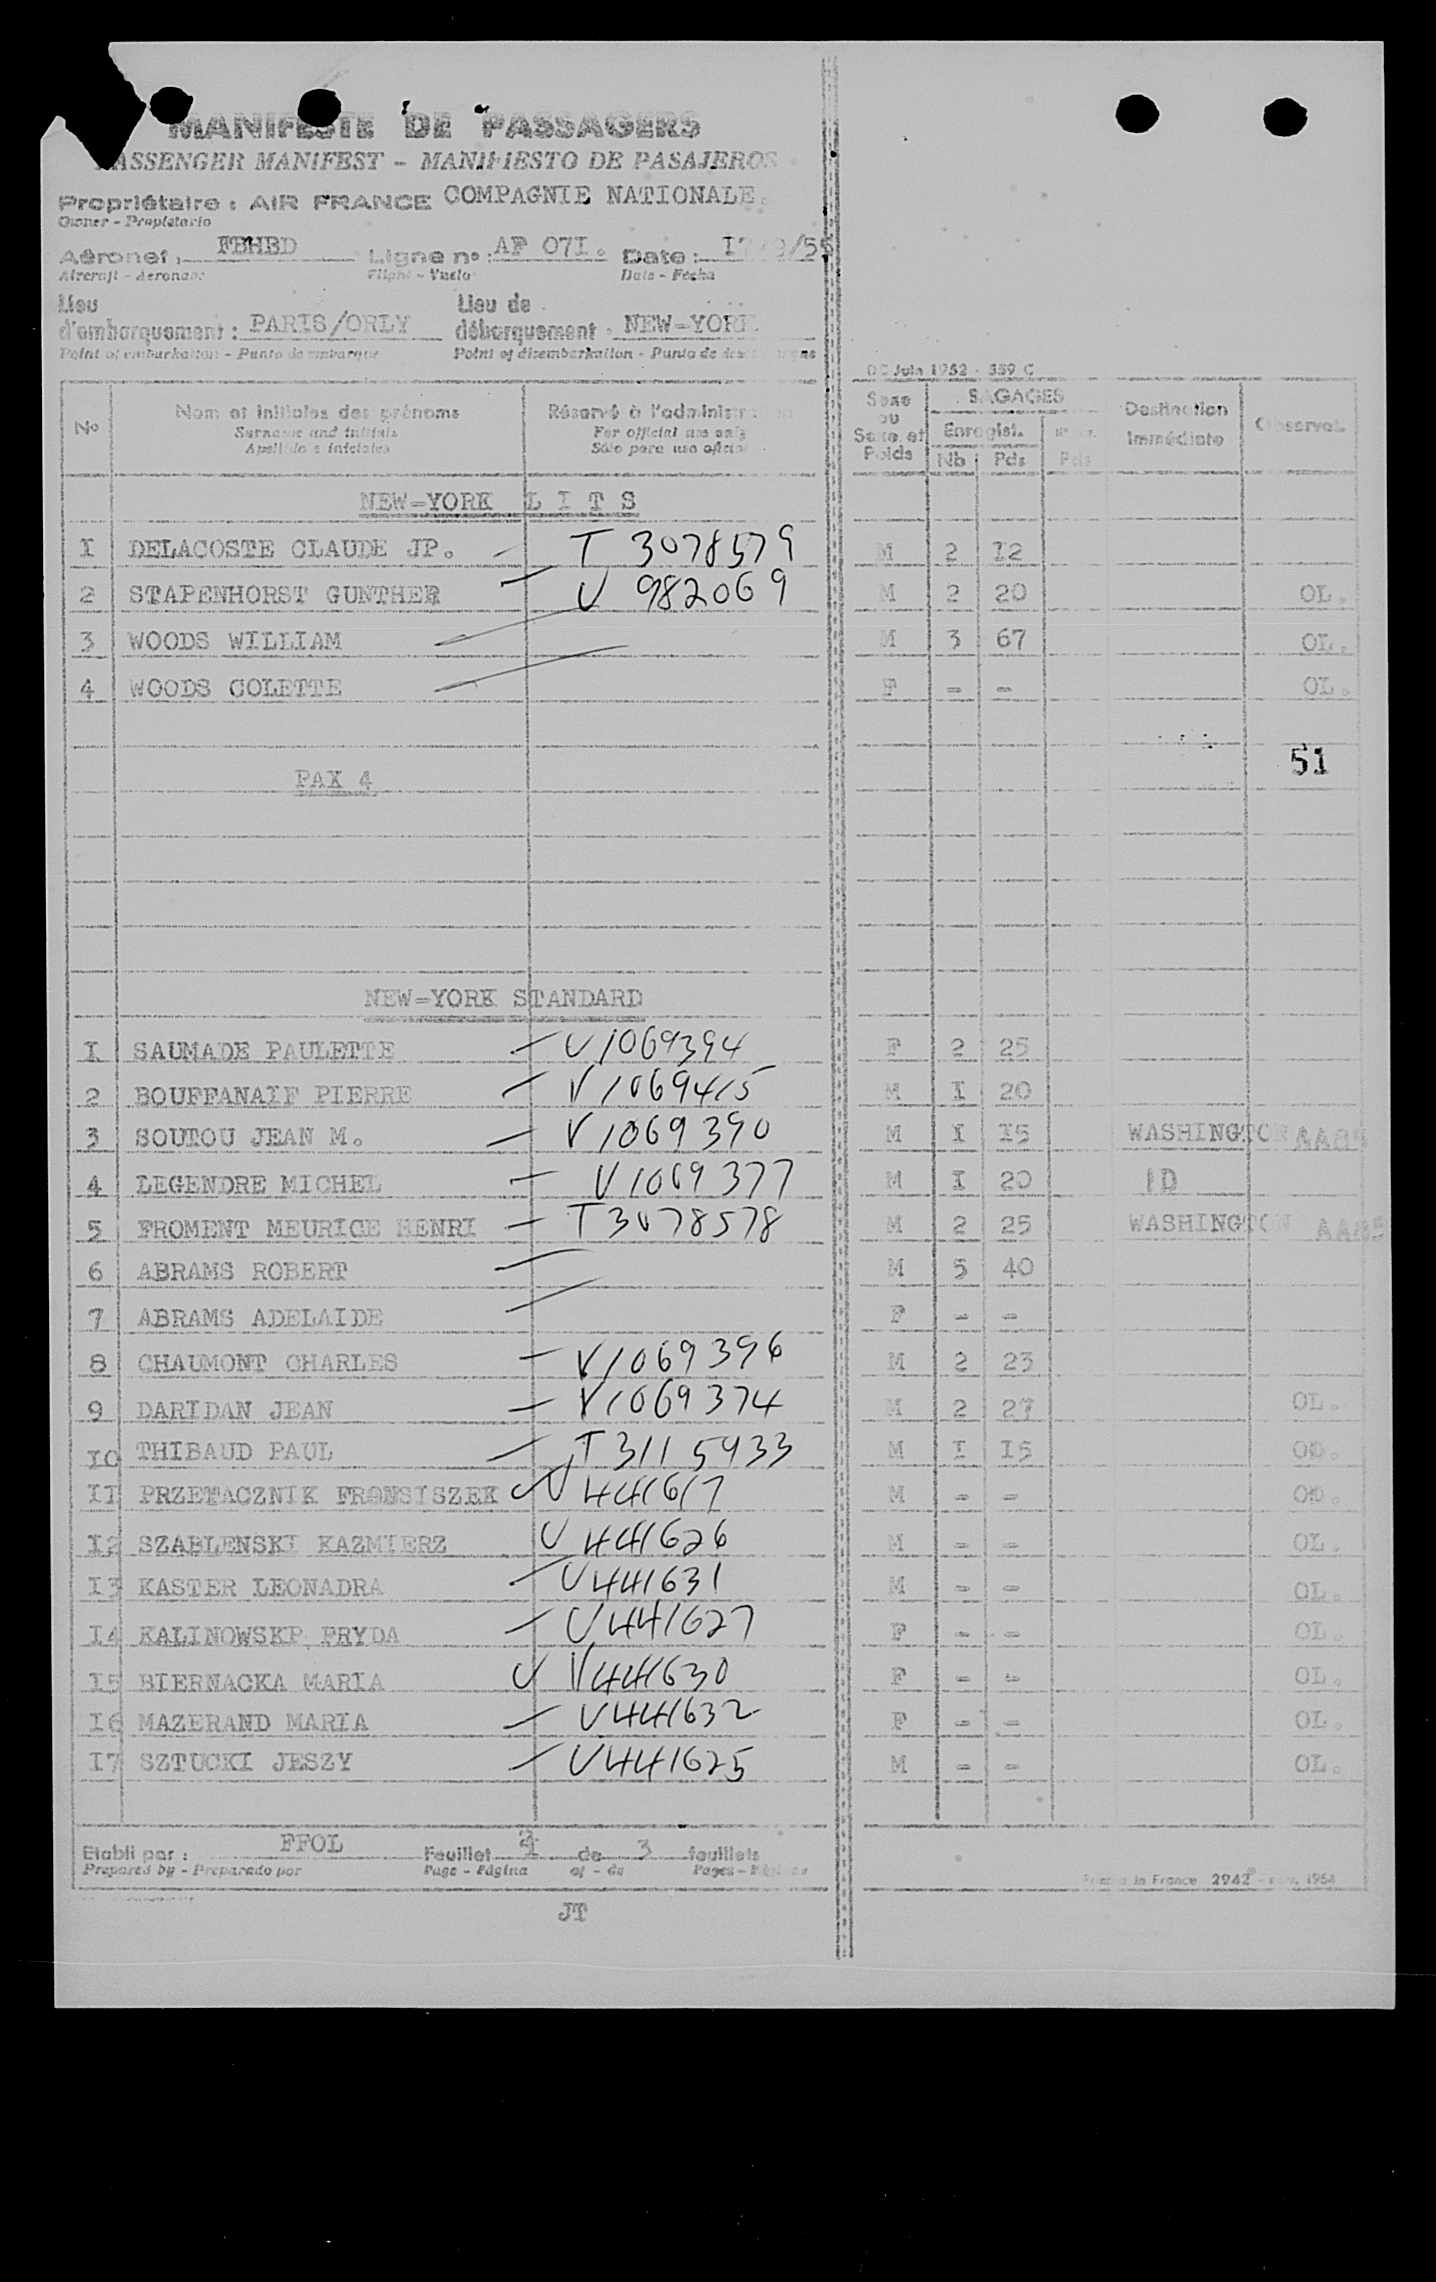 MANIFESTE DE PASSAGERS
PASSENGER MANIFEST - MANIFIESTO DE PASAJEROS
Propriétaire : AIR FRANCE COMPAGNIE NATIONALE.
Owner - Propietario
Aéronef : FBHBD Ligne nº : AF 07I. Date :
Aircraft - Aeronave Flight - Vuelo Date - Fecha
Lieu d'embarquement : PARIS/ORLY Lieu de débarquement : NEW-YORK
Point of embarkation - Punto de embarque Point of disembarkation - Punto de
DC Juin 1952 - 359 C
Nº Nom et initiales des prénoms Réservé à l'administration Sexe ou Sexe et Poids BAGAGES Destination Immédiate Observat.
Surname and initials For official use only Enregist.
Apellido e iniciales Sólo para uso oficial Nb Pds Pds
NEW-YORK L I T S
I DELACOSTE CLAUDE JP. T 3078579 M 2 I2
2 STAPENHORST GUNTHER V 982069 M 2 20 OL.
3 WOODS WILLIAM M 3 67 OL.
4 WOODS COLETTE F - - OL.
51
PAX 4
NEW-YORK STANDARD
I SAUMADE PAULETTE V1069394 F 2 25
2 BOUFFANAIF PIERRE V1069415 M I 20
3 SOUTOU JEAN M. V1069390 M I I5 WASHINGTON
4 LEGENDRE MICHEL V1069377 M I 20 ID
5 FROMENT MEURICE HENRI T3078578 M 2 25 WASHINGTON
6 ABRAMS ROBERT M 5 40
7 ABRAMS ADELAIDE F - -
8 CHAUMONT CHARLES V1069396 M 2 23
9 DARIDAN JEAN V1069374 M 2 27 OL.
I0 THIBAUD PAUL T3115933 M I I5
II PRZETACZNIK FRANSISZEK V441617 M - -
I2 SZABLENSKI KAZMIERZ V441626 M - - OL.
I3 KASTER LEONADRA V441631 M - - OL.
I4 KALINOWSKP FRYDA V441627 F - - OL.
I5 BIERNACKA MARIA V441630 F - - OL.
I6 MAZERAND MARIA V441632 F - - OL.
I7 SZTUCKI JESZY V441625 M - - OL.
Etabli par : FFOL Feuillet de 3 feuillets
Prepared by - Preparado por Page - Página of - de Pages - Páginas
in France 2942 1954
JT